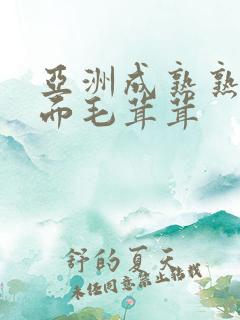 亞洲成熟熟
而毛茸茸
舒的夏天
未经同意禁止转载